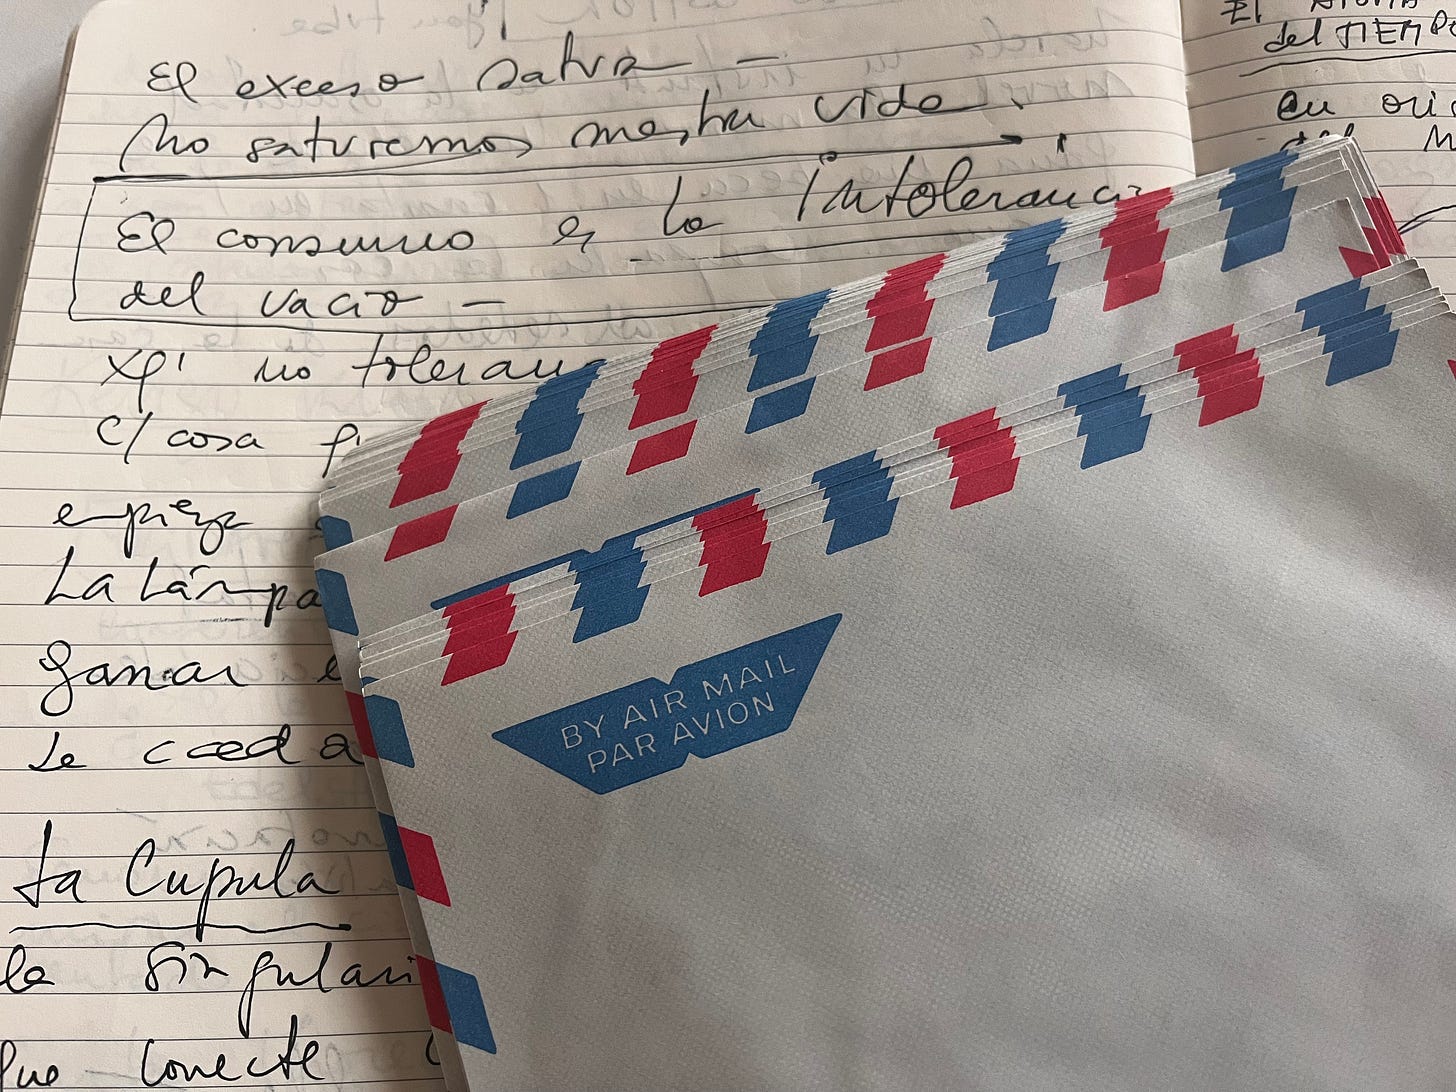 El exceso satura –
No saturemos nuestra vida.
El consumo es la Intolerancia
del vacio –
xq' no toleran
c/ cosa
empieza
La Lámpa
ganar
se
La Cupula
la singulari
que conecte
El
del TIEMPO
en ori
del M
BY AIR MAIL
PAR AVION